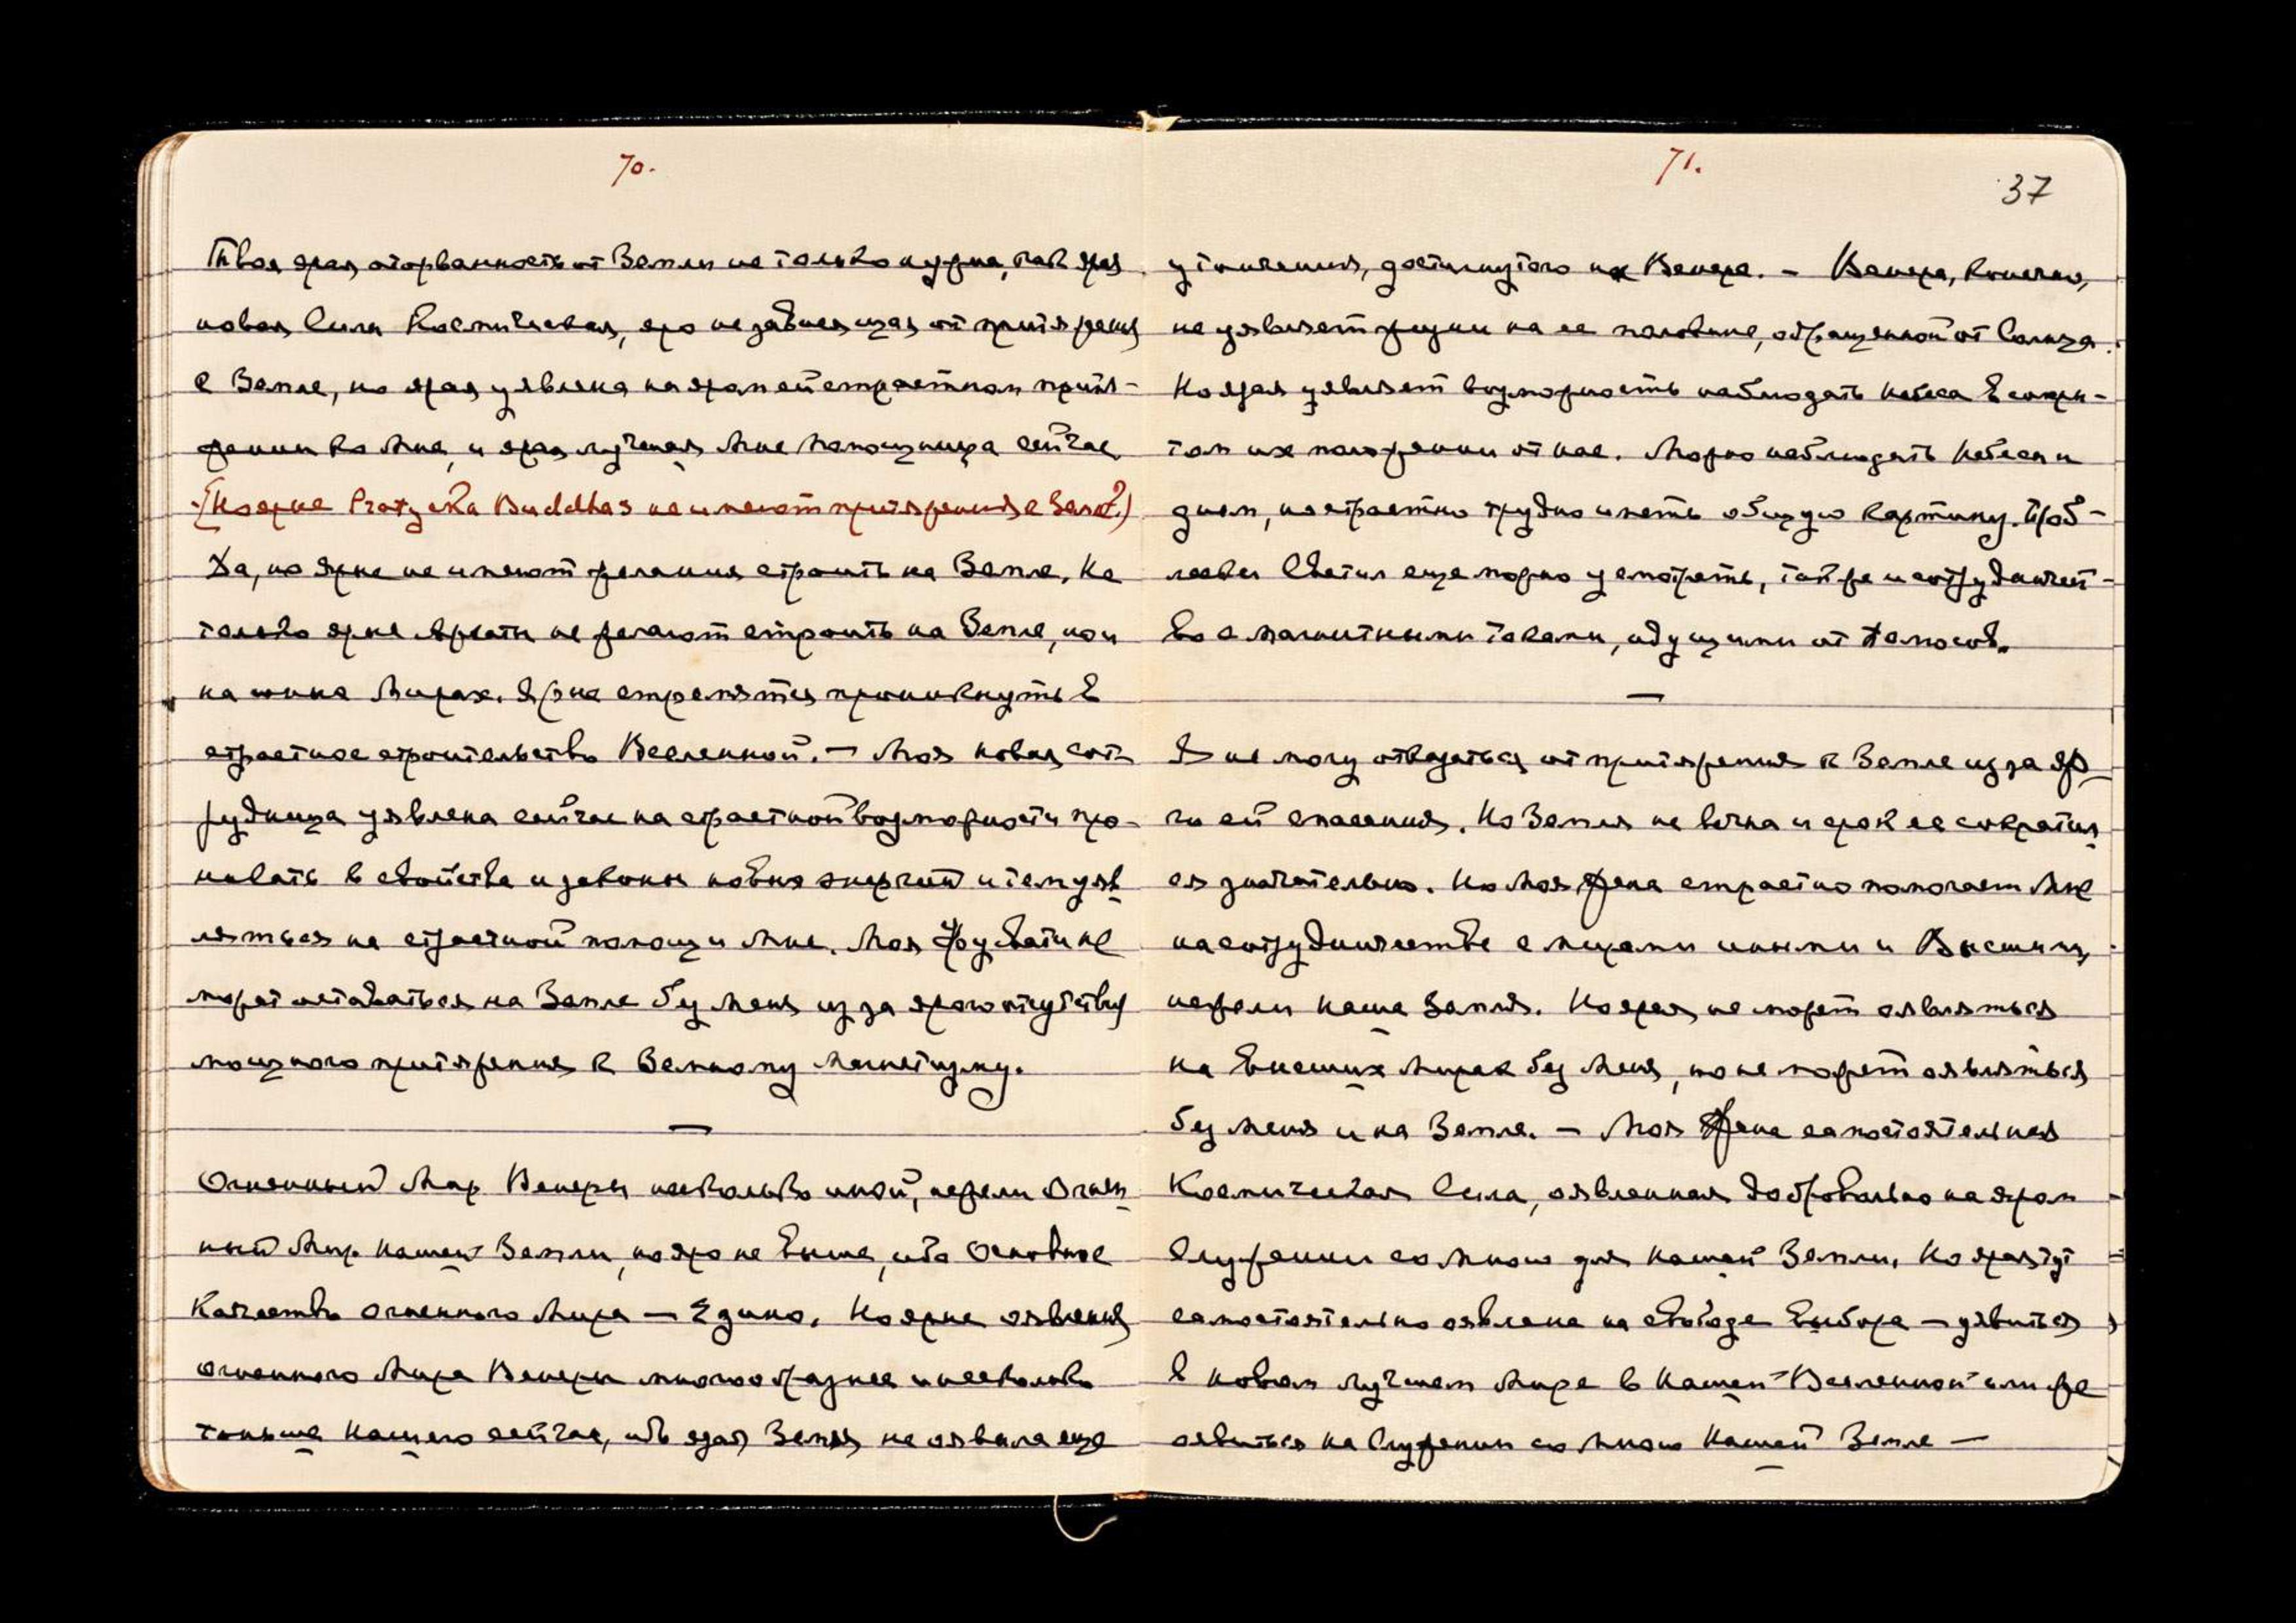 70.
Твоя ярая оторванность от Земли не только нужна, как ярая
новая Сила Космическая, яро не зависящая от притяжения
к Земле, но ярая уявлена на яром ей страстном притя-
жении ко Мне, и ярая лучшая Мне помощница сейчас.
(Но ярые Pratyeka Buddhas не имеют притяжения к Земле?)
Да, но ярые не имеют желания строить на Земле. Не
только ярые Архаты не желают строить на Земле, но и
на иных Мирах. Ярые стремятся проникнуть в
страстное строительство Вселенной. — Моя новая сот-
рудница уявлена сейчас на страстной возможности про-
никать в свойства и законы новых энергий и тем уяв
ляться на страстной помощи Мне. Моя Свати не
может оставаться на Земле без Меня из за ярого отсутствия
мощного притяжения к Земному Магнетизму.
—
Огненный Мир Венеры несколько иной, нежели Огнен
ный Мир нашей Земли, но яро не выше, ибо Основное
Качество Огненного Мира — Едино. Но ярые явления
Огненного Мира Венеры многообразнее и несколько
тоньше Нашего сейчас, ибо ярая Земля не оявила еще
71.
37
утончения, достигнутого на Венере. — Венера, конечно,
не уявляет жизни на ее половине, обращенной от Солнца.
Но ярая уявляет возможность наблюдать Небеса в сокры-
том их положении от нас. Можно наблюдать Небеса и
днем, но страстно трудно иметь общую картину.
Светил еще можно усмотреть, также и сотрудничест-
во с магнитными токами, идущими от Полюсов.
—
Я не могу отказаться от притяжения к Земле из за яр
го ей спасения. Но Земля не вечна и срок ее сократил
ся значительно. Но Моя Жена страстно помогает Мне
на сотрудничестве с мирами иными и Высшими,
нежели наша Земля. Но ярая не может оявляться
на Высших Мирах без Меня, но не может оявляться
без Меня и на Земле. — Моя Жена самостоятельная
Космическая Сила, оявленная добровольно на яром
Служении со Мною для нашей Земли. Но ярая тут
самостоятельно оявлена на свободе выбора — уявиться
в новом лучшем Мире в нашей Вселенной или же
оявиться на Служении со Мною Нашей Земле —